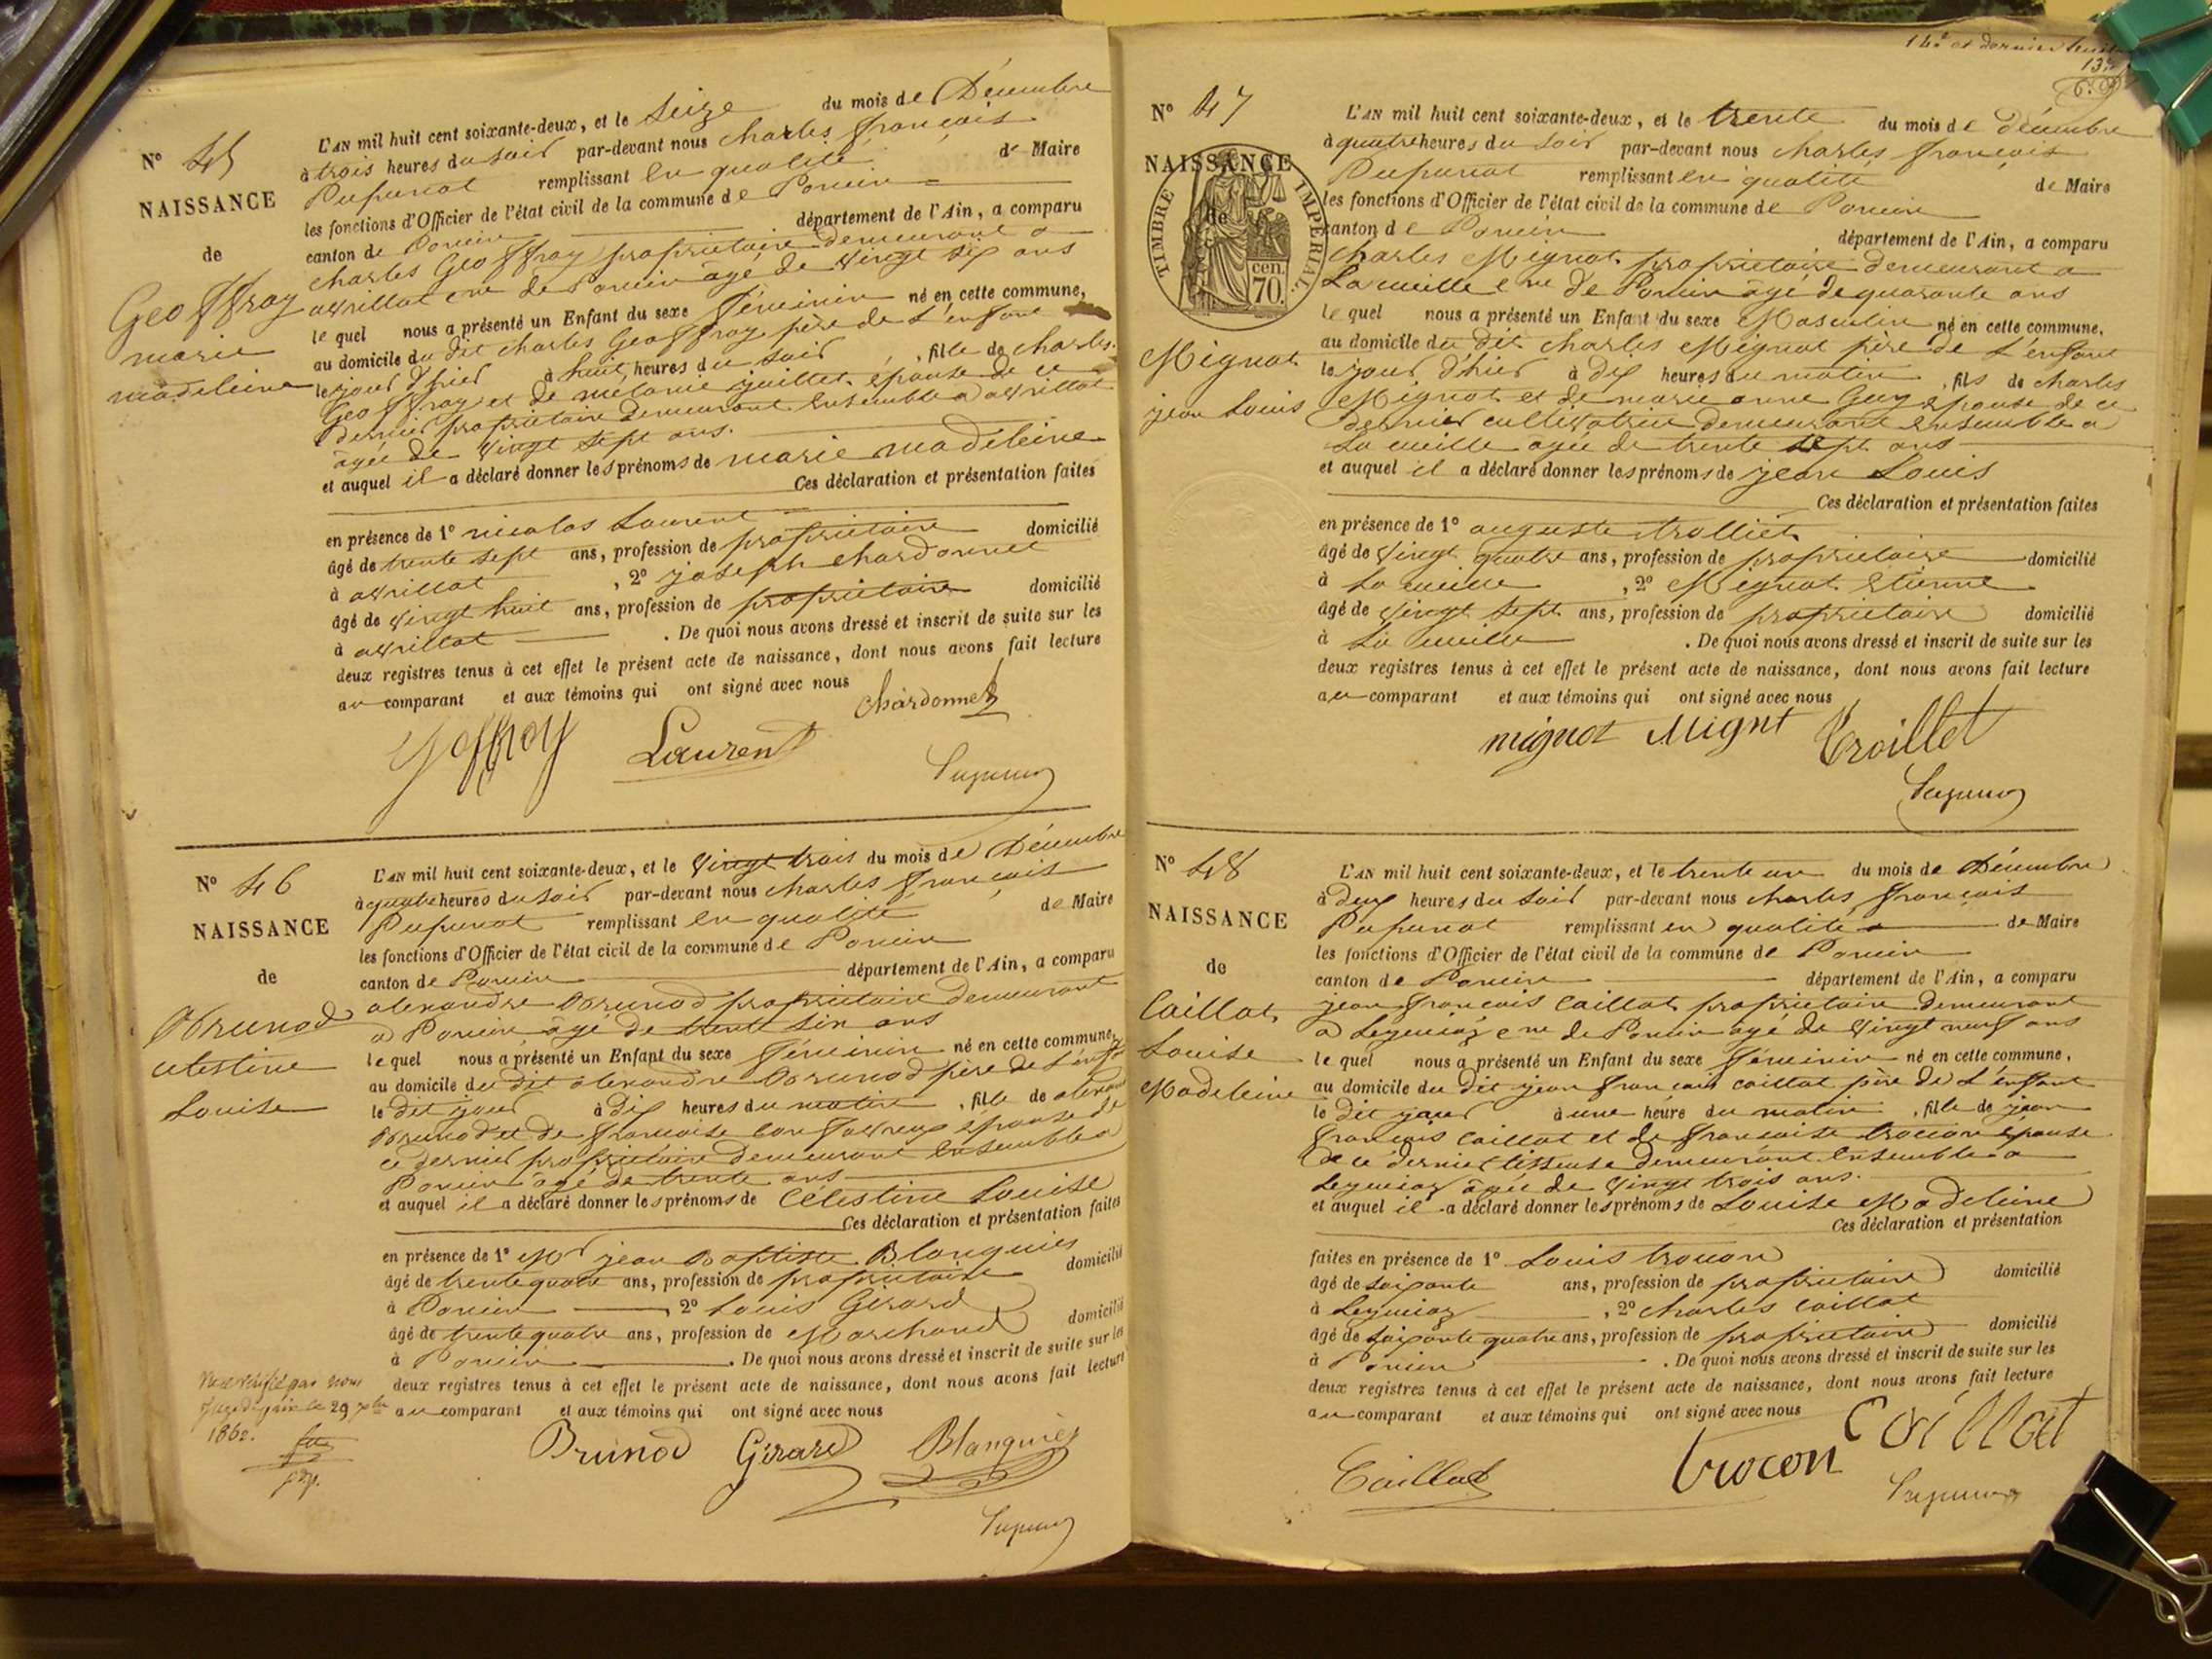 N° 45
NAISSANCE
de
Geoffray
marie
madeleine
L'AN mil huit cent soixante-deux, et le Seize du mois de Décembre
à trois heures du soir par-devant nous Charles françois
Pupunat remplissant en qualité de Maire
les fonctions d'Officier de l'état civil de la commune de Poncin
canton de Poncin département de l'Ain, a comparu
Charles Geoffray propriétaire demeurant a
avrillat cne de Poncin agé de Vingt dix ans
le quel nous a présenté un Enfant du sexe féminin né en cette commune,
au domicile du dit Charles Geoffray père de l'enfant
le jour d'hier à huit heures du soir, fille de Charles
Geoffray et de mélanie juillet épouse de ce
dernier propriétaire demeurant ensemble a avrillat
agée de Vingt sept ans.
et auquel il a déclaré donner les prénoms de marie madeleine
Ces déclaration et présentation faites
en présence de 1° nicolas Laurent
âgé de trente sept ans, profession de propriétaire domicilié
à avrillat, 2° joseph chardonnet
âgé de Vingt huit ans, profession de propriétaire domicilié
à avrillat. De quoi nous avons dressé et inscrit de suite sur les
deux registres tenus à cet effet le présent acte de naissance, dont nous avons fait lecture
au comparant et aux témoins qui ont signé avec nous
Chardonnet
Geffroy Laurent
Pupunat
N° 46
NAISSANCE
de
Brunod
celestine
Louise
L'AN mil huit cent soixante-deux, et le Vingt trois du mois de Décembre
à quatre heures du soir par-devant nous Charles françois
Pupunat remplissant en qualité de Maire
les fonctions d'Officier de l'état civil de la commune de Poncin
canton de Poncin département de l'Ain, a comparu
alexandre Brunod propriétaire demeurant
a Poncin âgé de trente six ans
le quel nous a présenté un Enfant du sexe féminin né en cette commune,
au domicile du dit alexandre Brunod père de l'enft
le dit jour à dix heures du matin, fille de alexand
Brunod et de françoise épouse de
ce dernier propriétaire demeurant ensemble a
Poncin âgé de trente ans
et auquel il a déclaré donner les prénoms de Célestine Louise
Ces déclaration et présentation faites
en présence de 1° Mr jean Baptiste Blanguies
âgé de trente quatre ans, profession de propriétaire domicilié
à Poncin, 2° Louis Girard
âgé de trente quatre ans, profession de Marchand domicilié
à Poncin. De quoi nous avons dressé et inscrit de suite sur les
deux registres tenus à cet effet le présent acte de naissance, dont nous avons fait lecture
au comparant et aux témoins qui ont signé avec nous
vérifié par nous
Juge de paix le 29 xbre
1862.
Brunod Girard Blanguies
Pupunat
14e et dernier feuillet
N° 47
NAISSANCE
de
TIMBRE IMPÉRIAL
70 cen.
Mignot
jean Louis
L'AN mil huit cent soixante-deux, et le trente du mois de décembre
à quatre heures du soir par-devant nous Charles françois
Pupunat remplissant en qualité de Maire
les fonctions d'Officier de l'état civil de la commune de Poncin
canton de Poncin département de l'Ain, a comparu
Charles Mignot propriétaire demeurant a
La cueille cne de Poncin âgé de quarante ans
le quel nous a présenté un Enfant du sexe Masculin né en cette commune.
au domicile du dit Charles Mignot père de l'enfant
le jour d'hier à dix heures du matin, fils de Charles
Mignot et de marie anne Guy épouse de ce
dernier cultivatrice demeurant ensemble a
La cueille agée de trente sept ans
et auquel il a déclaré donner les prénoms de jean Louis
Ces déclaration et présentation faites
en présence de 1° auguste trolliet
âgé de Vingt quatre ans, profession de propriétaire domicilié
à La cueille, 2° Mignot Etienne
âgé de Vingt sept ans, profession de propriétaire domicilié
à La cueille. De quoi nous avons dressé et inscrit de suite sur les
deux registres tenus à cet effet le présent acte de naissance, dont nous avons fait lecture
au comparant et aux témoins qui ont signé avec nous
mignot Mignt Troillet
Pupunat
N° 48
NAISSANCE
de
Caillat
Louise
Madeleine
L'AN mil huit cent soixante-deux, et le trente un du mois de Décembre
à deux heures du soir par-devant nous Charles françois
Pupunat remplissant en qualité de Maire
les fonctions d'Officier de l'état civil de la commune de Poncin
canton de Poncin département de l'Ain, a comparu
jean françois Caillat propriétaire demeurant
a Leymiaz cne de Poncin agé de Vingt neuf ans
le quel nous a présenté un Enfant du sexe féminin né en cette commune,
au domicile du dit jean françois Caillat père de l'enfant
le dit jour à une heure du matin, fille de jean
françois Caillat et de françoise trocon épouse
de ce dernier tisseuse demeurant ensemble a
Leymiaz agée de Vingt trois ans.
et auquel il a déclaré donner les prénoms de Louise Madeleine
Ces déclaration et présentation
faites en présence de 1° Louis trocon
âgé de soixante ans, profession de propriétaire domicilié
à Leymiaz, 2° Charles Caillat
âgé de soixante quatre ans, profession de propriétaire domicilié
à Poncin. De quoi nous avons dressé et inscrit de suite sur les
deux registres tenus à cet effet le présent acte de naissance, dont nous avons fait lecture
au comparant et aux témoins qui ont signé avec nous
Caillat trocon Caillat
Pupunat